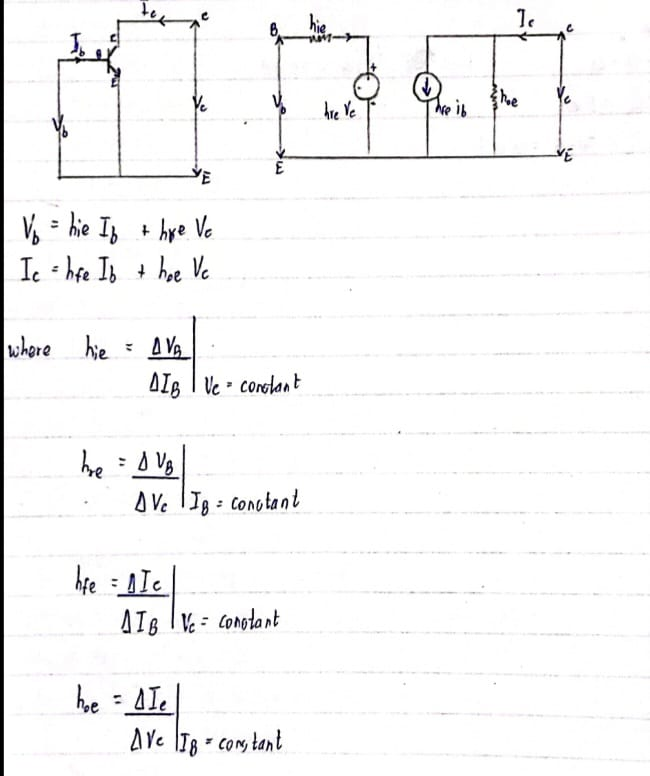 Ic
c
Ib
B
C
E
Vb
Vc
E
B
hie
Vb
hre Vc
+
-
E
hfe ib
hoe
Ic
c
Vc
E
Vb = hie Ib + hre Vc
Ic = hfe Ib + hoe Vc
where hie = ΔVB
ΔIB | Vc = constant
hre = ΔVB
ΔVc | IB = constant
hfe = ΔIc
ΔIB | Vc = constant
hoe = ΔIc
ΔVc | IB = constant